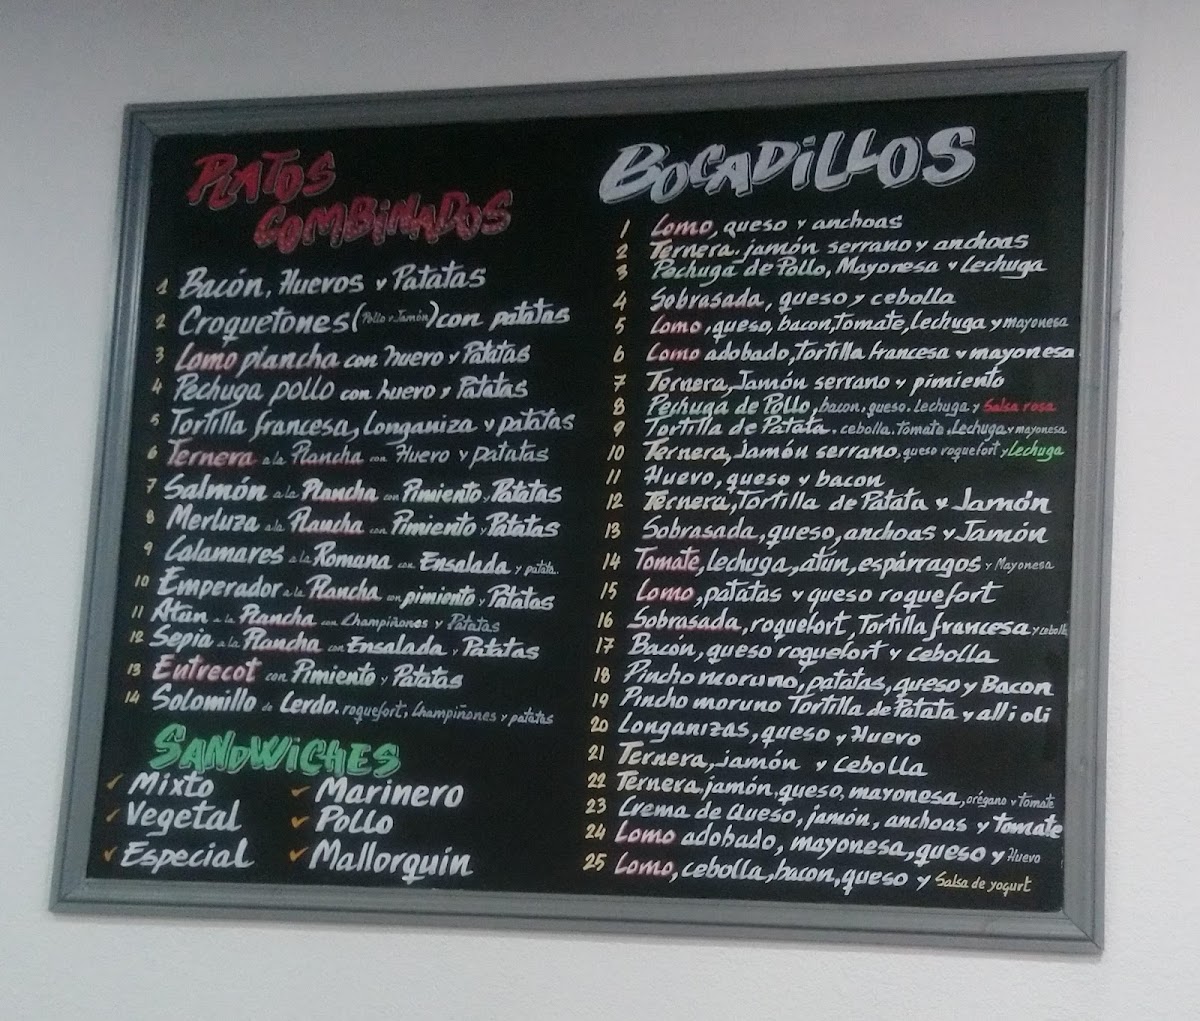 PLATOS
COMBINADOS
1 Bacón, Huevos y Patatas
2 Croquetones (Pollo y Jamón) con patatas
3 Lomo plancha con huevo y Patatas
4 Pechuga pollo con huevo y Patatas
5 Tortilla francesa, Longaniza y patatas
6 Ternera a la Plancha con Huevo y patatas
7 Salmón a la Plancha con Pimiento y Patatas
8 Merluza a la Plancha con Pimiento y Patatas
9 Calamares a la Romana con Ensalada y patata.
10 Emperador a la Plancha con pimiento y Patatas
11 Atún a la Plancha con Champiñones y Patatas
12 Sepia a la Plancha con Ensalada y Patatas
13 Entrecot con Pimiento y Patatas
14 Solomillo de Cerdo, roquefort, Champiñones y patatas
SANDWICHES
Mixto
Vegetal
Especial
Marinero
Pollo
Mallorquín
BOCADILLOS
1 Lomo, queso y anchoas
2 Ternera, jamón serrano y anchoas
3 Pechuga de Pollo, Mayonesa y Lechuga
4 Sobrasada, queso y cebolla
5 Lomo, queso, bacon, Tomate, Lechuga y mayonesa
6 Lomo adobado, Tortilla francesa y mayonesa
7 Ternera, Jamón serrano y pimiento
8 Pechuga de Pollo, bacon, queso, Lechuga y Salsa rosa
9 Tortilla de Patata, cebolla, Tomate, Lechuga y mayonesa
10 Ternera, jamón serrano, queso roquefort y Lechuga
11 Huevo, queso y bacon
12 Ternera, Tortilla de Patata y Jamón
13 Sobrasada, queso, anchoas y Jamón
14 Tomate, Lechuga, atún, espárragos y Mayonesa
15 Lomo, patatas y queso roquefort
16 Sobrasada, roquefort, Tortilla francesa y cebolla
17 Bacón, queso roquefort y cebolla
18 Pincho moruno, patatas, queso y Bacon
19 Pincho moruno Tortilla de Patata y alli oli
20 Longanizas, queso y Huevo
21 Ternera, jamón y Cebolla
22 Ternera, jamón, queso, mayonesa, orégano y Tomate
23 Crema de Queso, jamón, anchoas y Tomate
24 Lomo adobado, mayonesa, queso y Huevo
25 Lomo, cebolla, bacon, queso y Salsa de yogurt